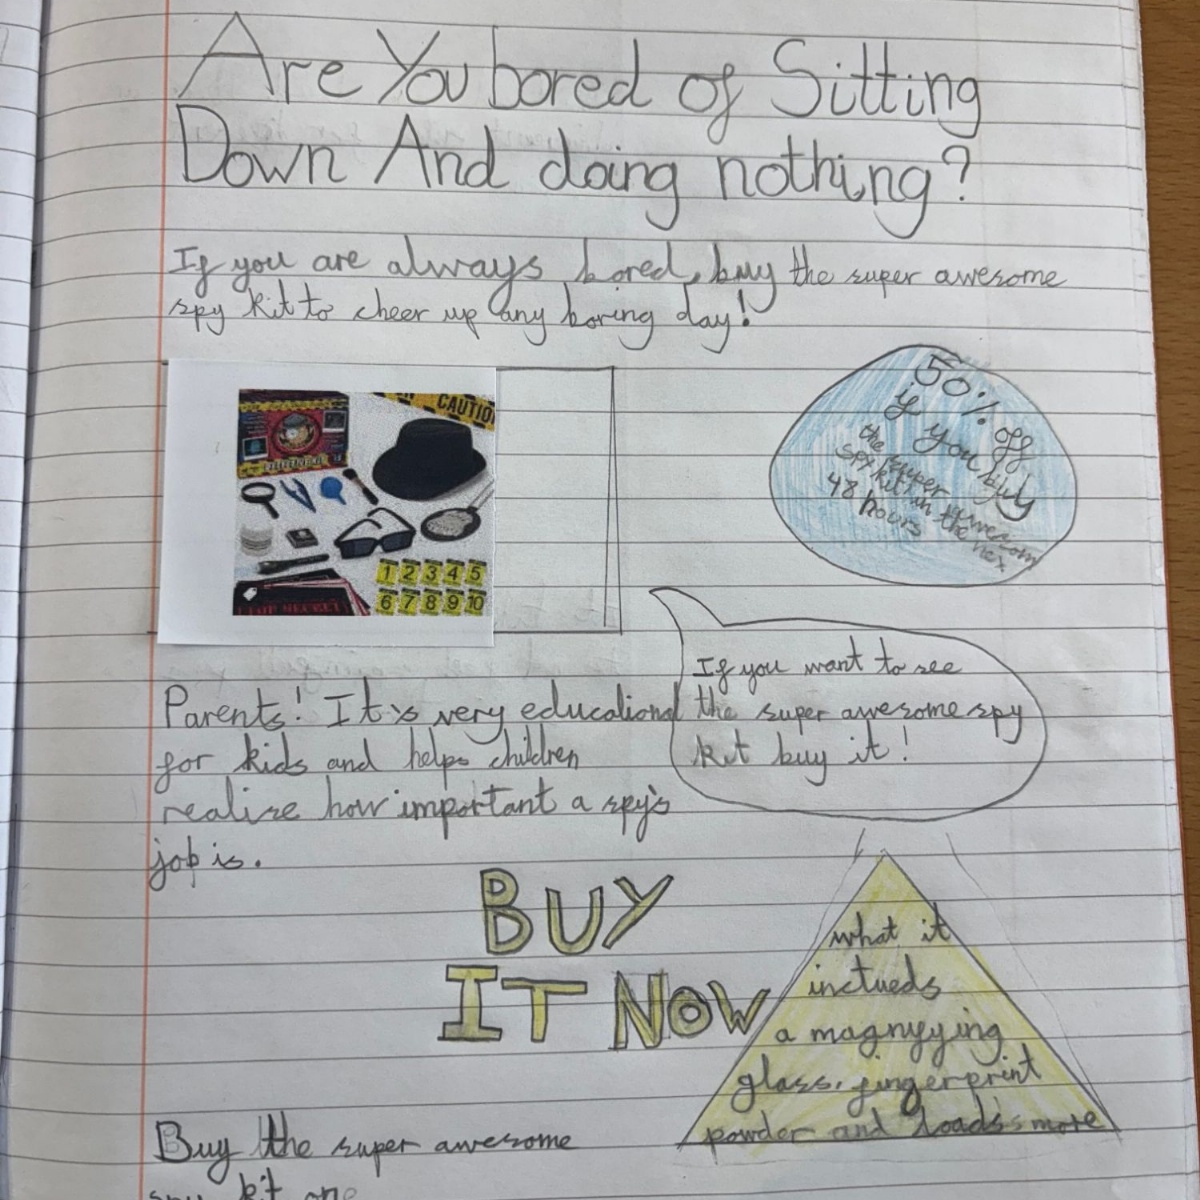 Are You bored of Sitting
Down And doing nothing?
If you are always bored, buy the super awesome
spy kit to cheer up any boring day!
CAUTIO
1 2 3 4 5
6 7 8 9 10
TOP SECRET
50% off
if you buy
the super awesom
spy kit in the nex
48 hours
If you want to see
the super awesome spy
kit buy it!
Parents! It's very educational
for kids and helps children
realise how important a spy's
job is.
BUY
IT NOW
what it
inctueds
a magnyfying
glass, fingerprint
powder and loads more
Buy the super awesome
spy kit one